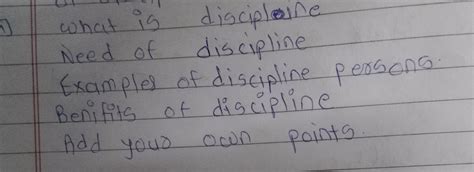 what is discipline
Need of discipline
Examples of discipline persons.
Benifits of discipline
Add your own points.